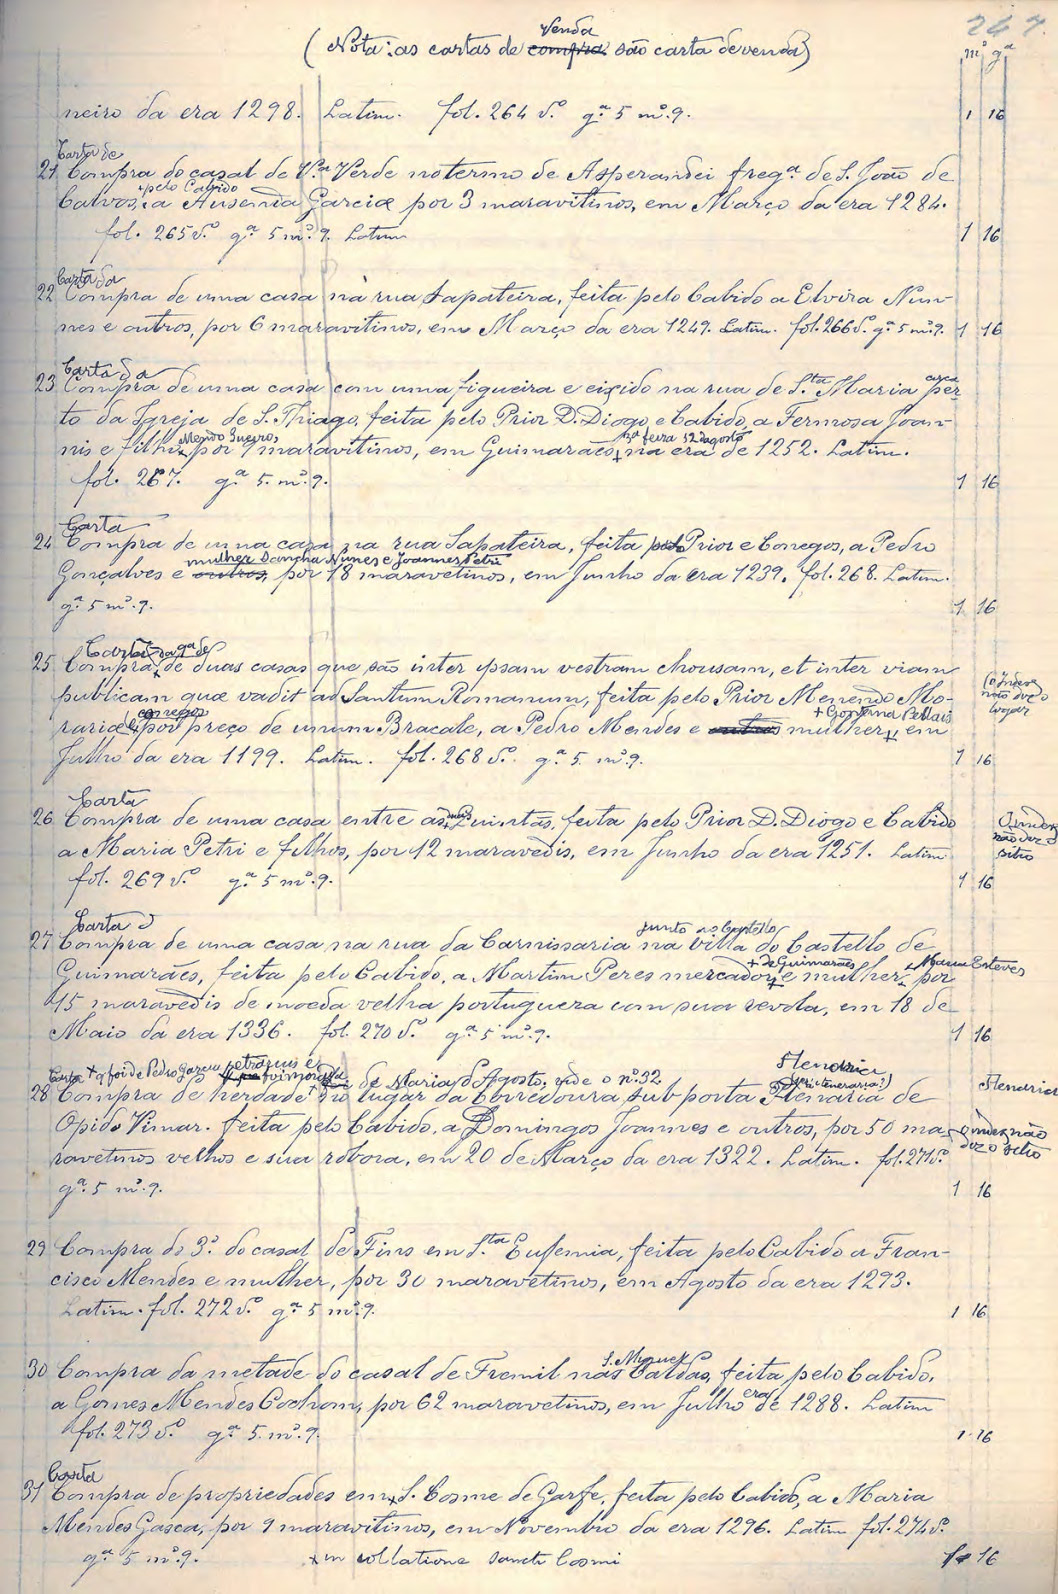 247.
Venda
(Nota: as cartas de compra são carta de venda)
mº gª
neiro da era 1298. Latim. fol. 264 vº gª 5 mº 9. 1 16
Carta de
21 Compra do casal de Vª Verde no termo de Asperandei fregª de S. João de
+ pelo Cabido
Calvos, a Ausenda Garciæ por 3 maravitinos, em Março da era 1284.
fol. 265 vº gª 5 mº 9. Latim 1 16
Carta da
22 Compra de uma casa na rua Sapateira, feita pelo Cabido a Elvira Nun-
nes e outros, por 6 maravitinos, em Março da era 1249. Latim. fol. 266 vº gª 5 mº 9. 1 16
Carta da
23 Compra de uma casa com uma figueira e eixido na rua de Sta Maria per-
to da Igreja de S. Thiago, feita pelo Prior D. Diogo e Cabido, a Fermosa Joan-
Mendo Sueiro,
nis e filho por 9 maravitinos, em Guimarães, + na era de 1252. Latim.
fol. 267. gª 5. mº 9. 1 16
Carta
24 Compra de uma casa na rua Sapateira, feita pelo Prior e Conegos, a Pedro
mulher Sancha Nunes e Joannes Petri
Gonçalves e outros, por 18 maravetinos, em Junho da era 1239. fol. 268. Latim.
gª 5 mº 9. 1 16
Carta
25 Compra de duas casas que são inter ipsam vestram chousam, et inter viam
publicam quæ vadit ad Santum Romanum, feita pelo Prior Menendo Mo-
conegos
rariæ e por preço de unum Bracale, a Pedro Mendes e outros mulher + em
Julho da era 1199. Latim. fol. 268 vº gª 5. mº 9. 1 16
(o Index
não diz o
logar
Carta
26 Compra de uma casa entre as Quintãs, feita pelo Prior D. Diogo e Cabido
a Maria Petri e filhos, por 12 maravedis, em Junho da era 1251. Latim
fol. 269 vº gª 5 mº 9. 1 16
O index
não diz o
sitio
Carta d
junto ao Castello
27 Compra de uma casa na rua da Carnissaria na villa do Castello de
+ de Guimarães Maria Esteves
Guimarães, feita pelo Cabido, a Martim Peres mercador + e mulher, por
45 maravedis de moeda velha portugueza com sua revola, em 18 de
Maio da era 1336. fol. 270 vº gª 5 mº 9. 1 16
Carta + q foi de Pedro Garcia
de Maria d'Agosto, vide o nº 32
28 Compra de herdade no lugar da Corredoura sub porta Flenaria de
Opido Vimar. feita pelo Cabido, a Domingos Joannes e outros, por 50 ma-
ravetinos velhos e sua robora, em 20 de Março da era 1322. Latim. fol. 271 vº
gª 5 mº 9. 1 16
o index não
diz o sitio
29 Compra do 3º do casal de Fins em Sta Eufemia, feita pelo Cabido a Fran-
cisco Mendes e mulher, por 30 maravetinos, em Agosto da era 1293.
Latim. fol. 272 vº gª 5 mº 9. 1 16
S. Miguel
30 Compra da metade do casal de Fremil nas Caldas, feita pelo Cabido,
a Gomes Mendes Cochom, por 62 maravetinos, em Julho era de 1288. Latim
fol. 273 vº gª 5. mº 9. 1 16
Carta
31 Compra de propriedades em + S. Cosme de Garfe, feita pelo Cabido, a Maria
Mendes Gasca, por 9 maravitinos, em Novembro da era 1296. Latim fol. 274 vº
gª 5 mº 9. + in collatione sancti Cosmi 1 16